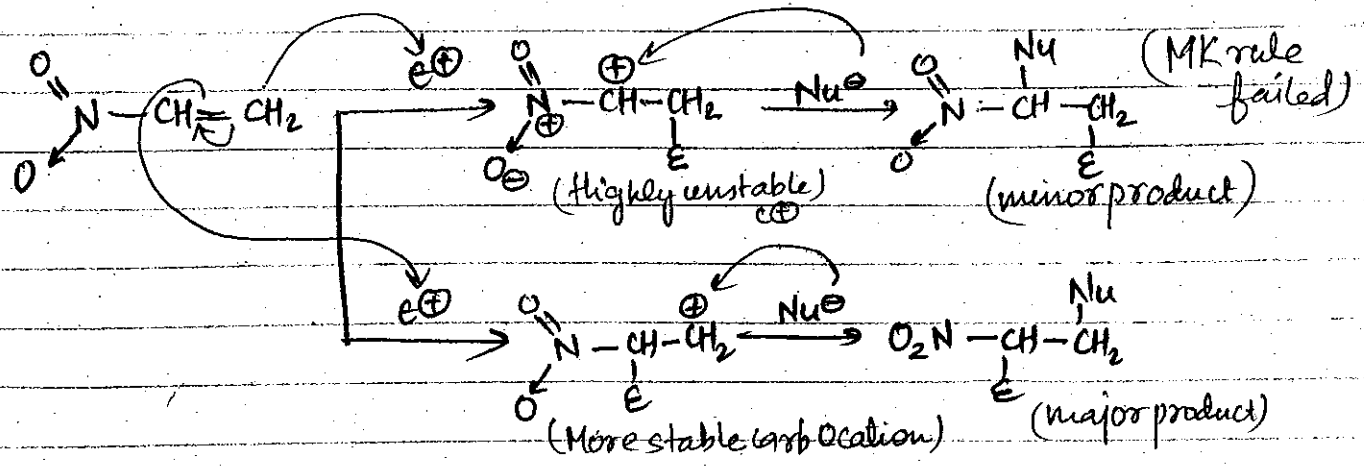 O N — CH = CH₂ O e⊕
O N⊕ — CH⊕ — CH₂ E O⊖ Nu⊖ O N — CH — CH₂ Nu O E
(MK rule
failed)
(Highly unstable)
c⊕
(minor product)
e⊕
O N — CH — CH₂⊕ O E Nu⊖ O₂N — CH — CH₂ Nu E
(More stable carbocation)
(major product)